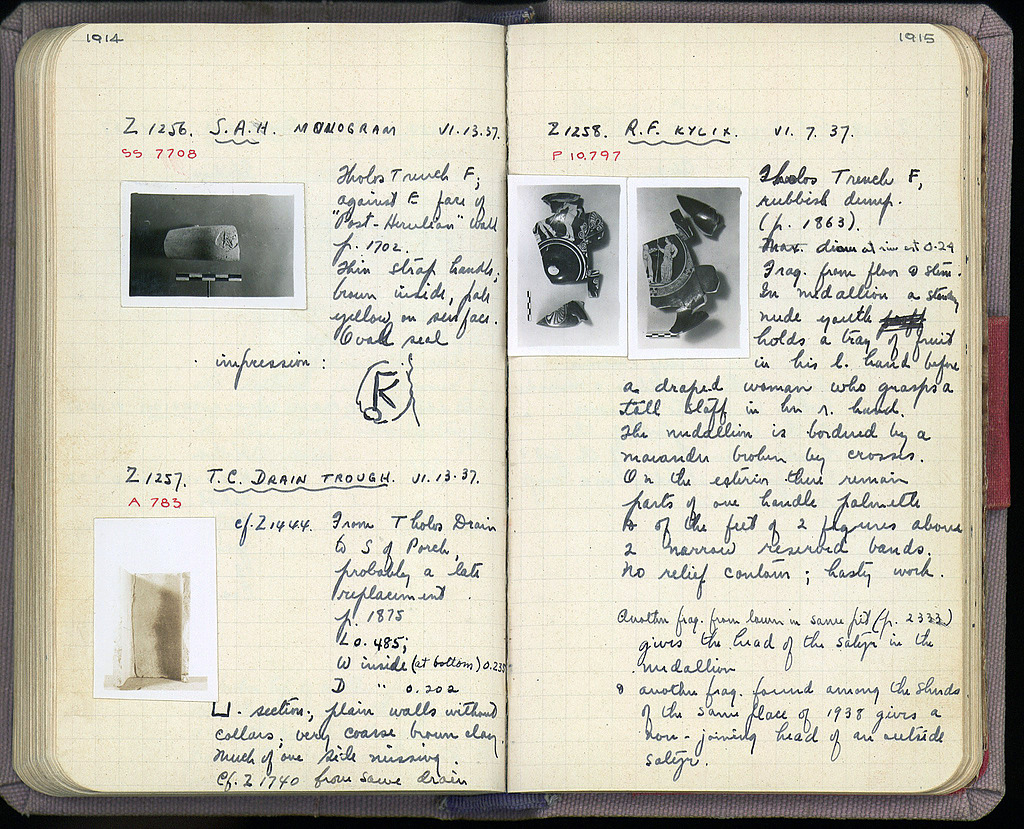 1914
Z 1256. S.A.H. MONOGRAM VI.13.37.
SS 7708
Tholos Trench F;
against E face of
"Post-Herulian" Wall
p. 1702.
Thin strap handle,
brown inside, pale
yellow on surface.
Oval seal
impression:
K
Z 1257. T.C. DRAIN TROUGH. VI.13.37.
A 783
cf. Z 1444. From Tholos Drain
to S of Porch,
probably a late
replacement
p. 1875
L 0.485;
W inside (at bottom) 0.235
D " 0.202
⊔. section; plain walls without
collars; very coarse brown clay.
Much of one side missing.
Cf. Z 1740 from same drain
1915
Z 1258. R.F. KYLIX. VI. 7. 37.
P 10.797
Tholos Trench F,
rubbish dump.
(p. 1863).
Max. diam at rim est 0.24
Frag. from floor & stem.
In medallion a standing
nude youth
holds a tray of fruit
in his l. hand before
a draped woman who grasps a
tall staff in her r. hand.
The medallion is bordered by a
maeander broken by crosses.
On the exterior there remain
parts of one handle palmette
& of the feet of 2 figures above
2 narrow reserved bands.
No relief contour; hasty work.
Another frag. from lower in same pit (p. 2333)
gives the head of the satyr in the
medallion
& another frag. found among the sherds
of the same place of 1938 gives a
non-joining head of an outside
satyr.